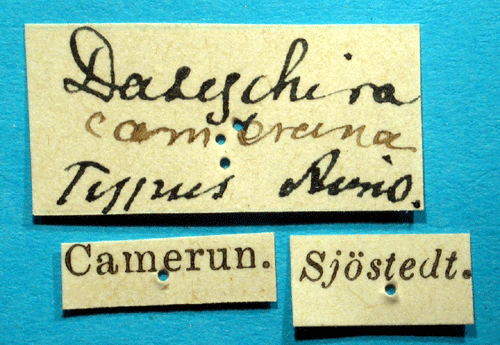 Dasychira
cameruna
Typus Auriv.
Camerun.
Sjöstedt.